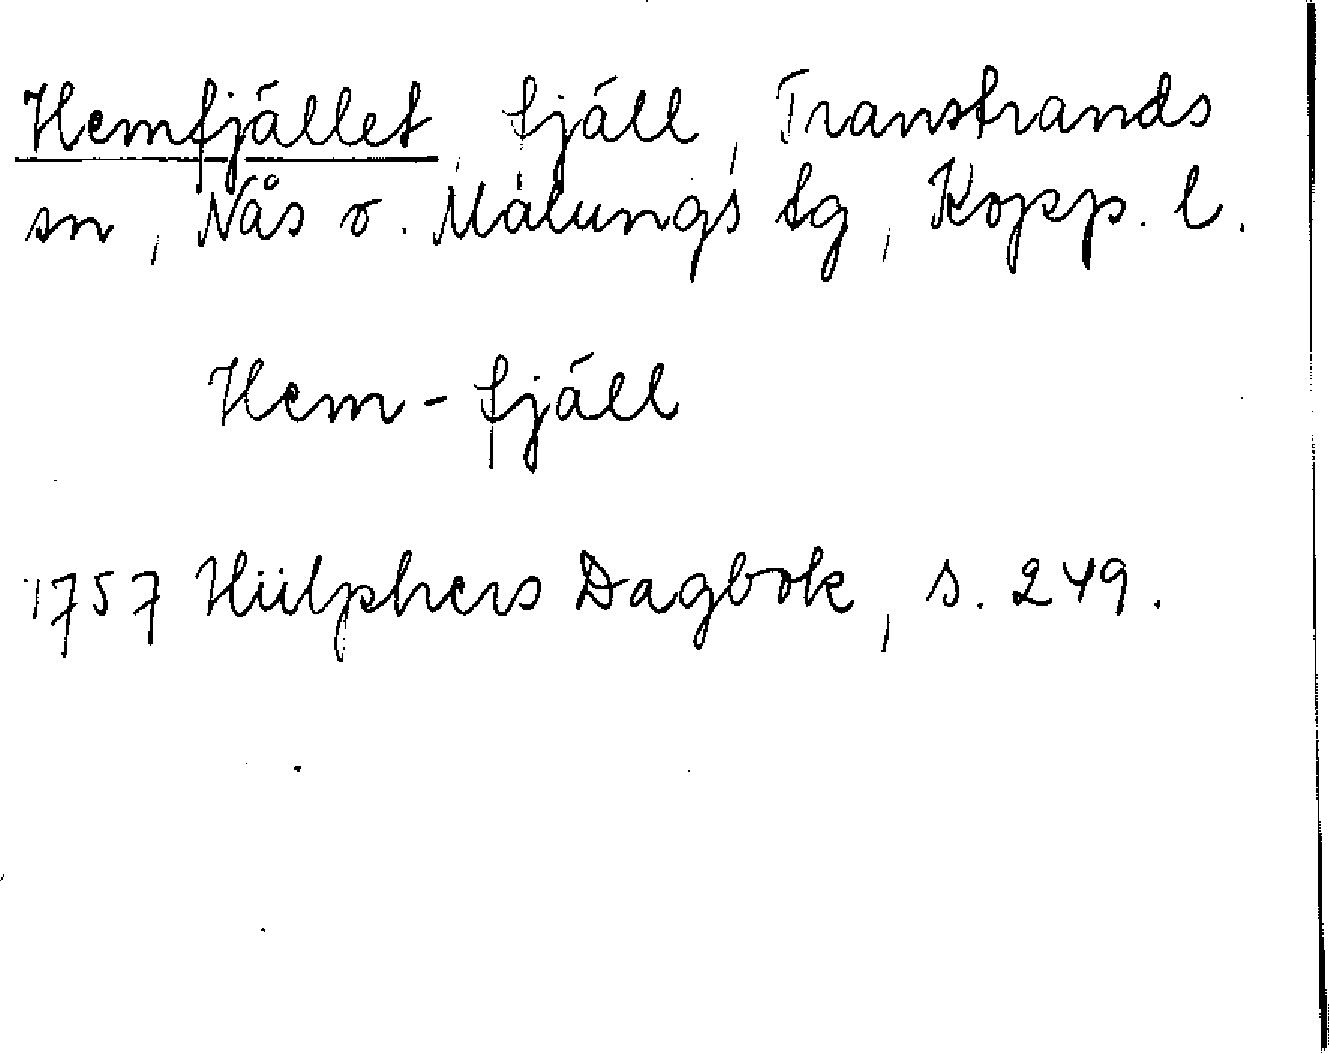 Hemfjället, fjäll, Transtrands
sn, Nås o. Malungs tg, Kopp. l.
Hem-fjäll
1757 Hülphers Dagbok, s. 249.